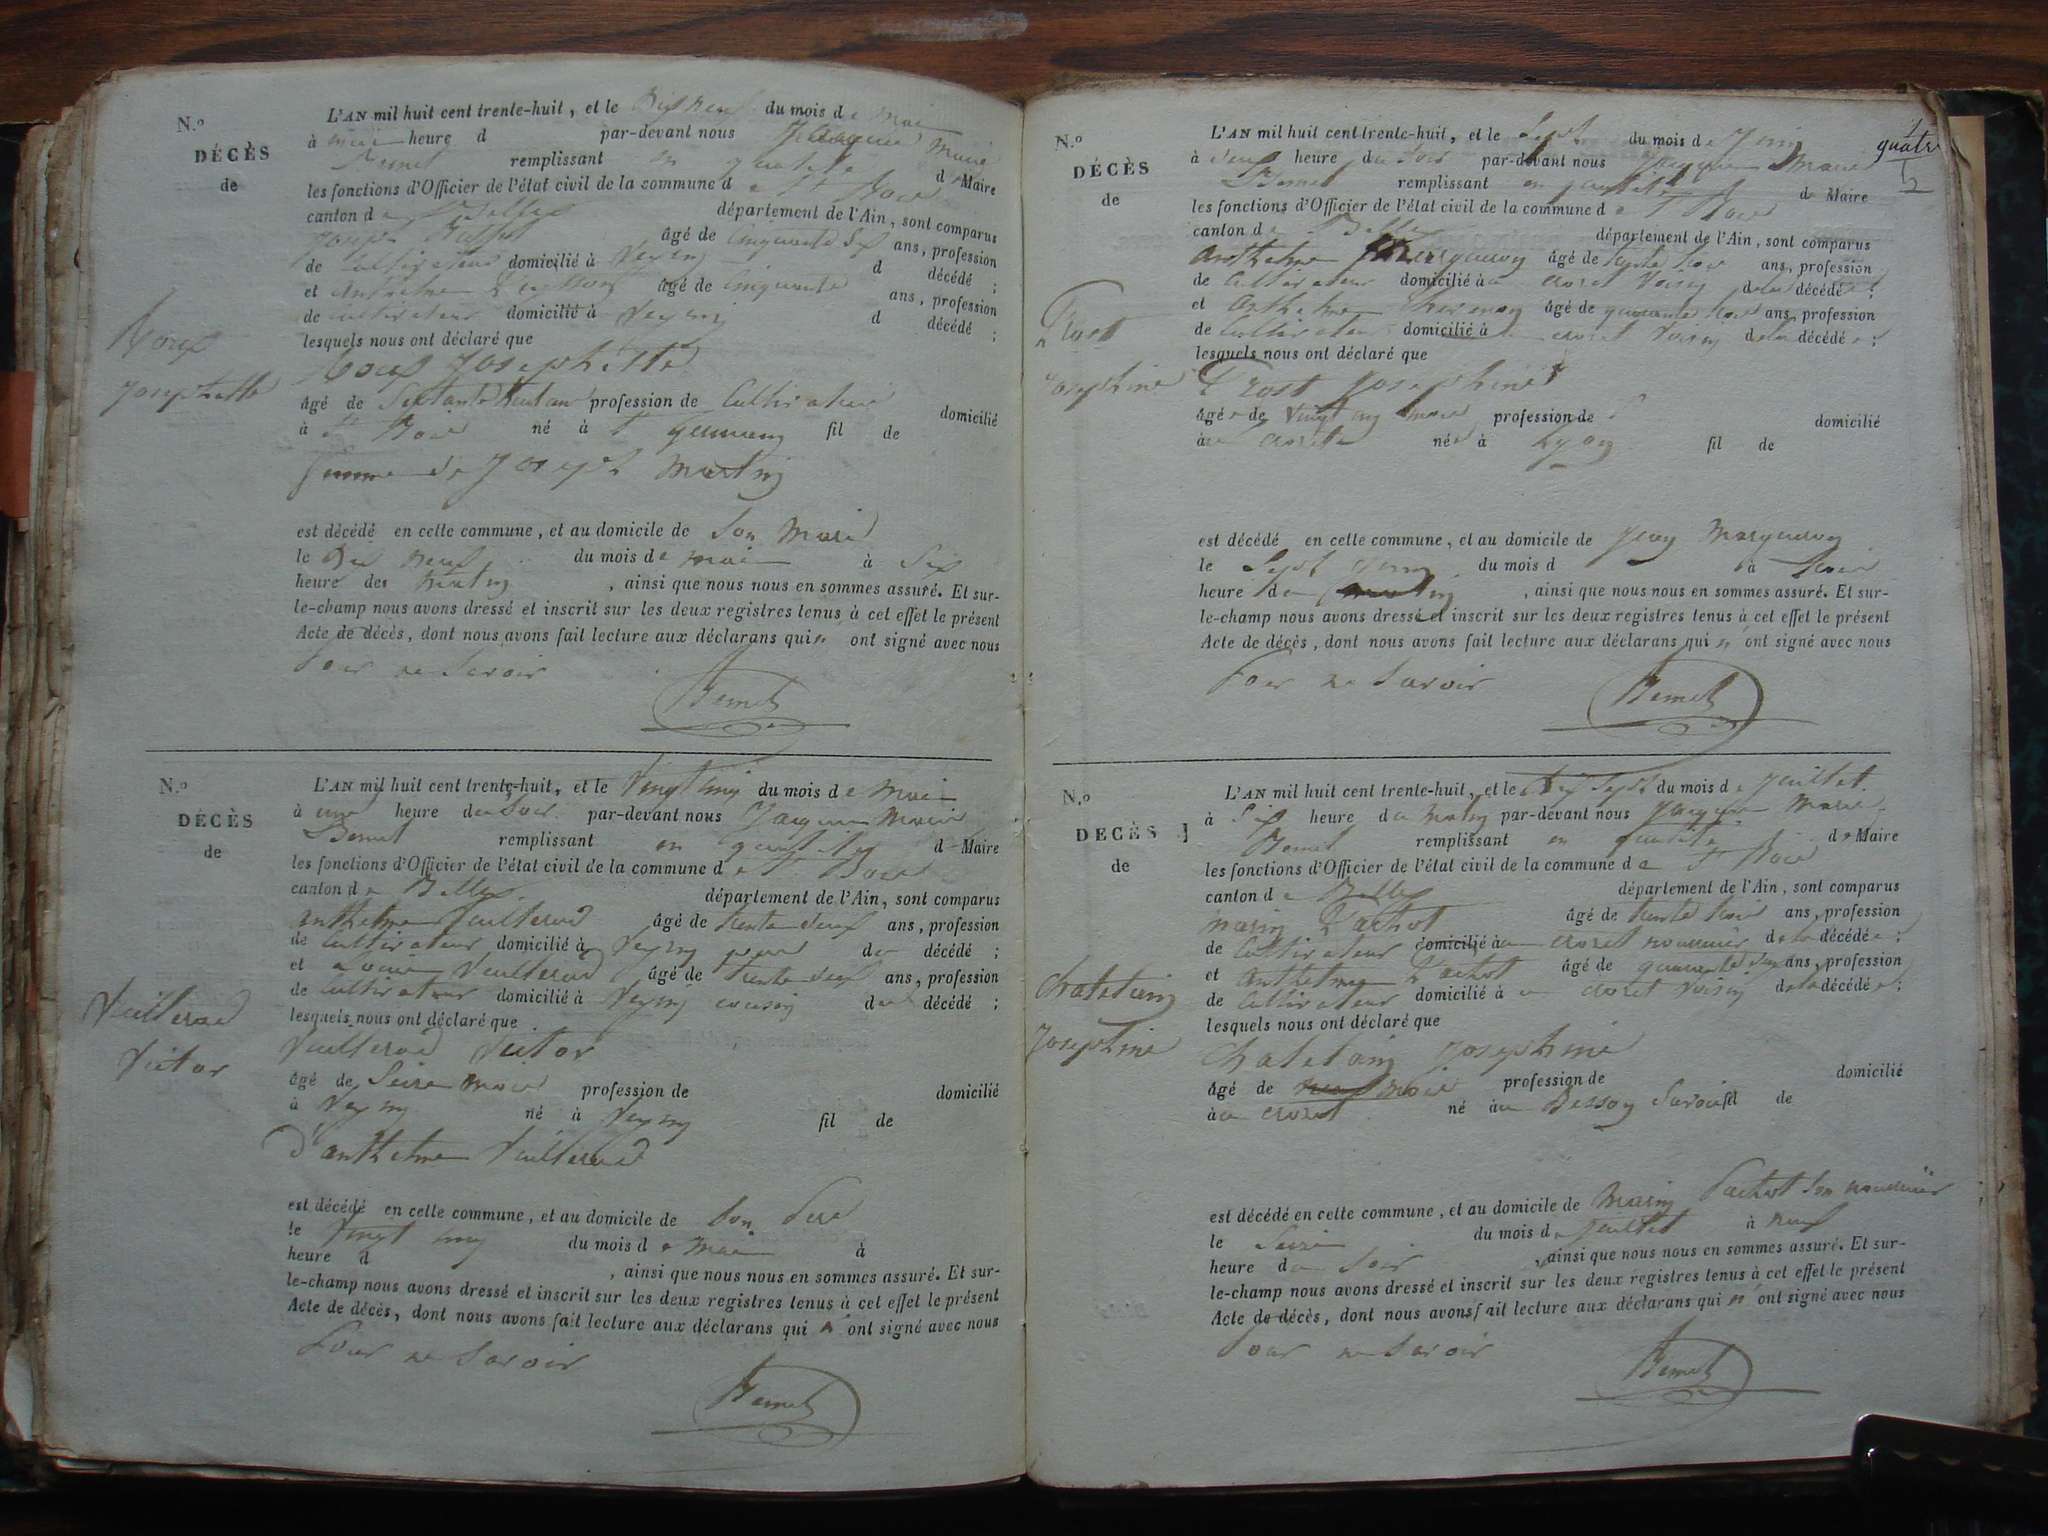 N.º
DÉCÈS
de
Roux
Josephette
L'AN mil huit cent trente-huit, et le Dix neuf du mois de Mai
à heure d par-devant nous Jacques Marie
Bernet remplissant en qualité de Maire
les fonctions d'Officier de l'état civil de la commune de St Bois
canton de Belley département de l'Ain, sont comparus
Joseph âgé de Cinquante Six ans, profession
de Cultivateur domicilié à Veyrin d décédé ;
et Anthelme âgé de Cinquante ans, profession
de cultivateur domicilié à Veyrin d décédé ;
lesquels nous ont déclaré que
Roux Josephette
âgé de profession de Cultivatrice domicilié
à St Bois né à St fil de
femme de Joseph Martin
est décédé en cette commune, et au domicile de Son Mari
le Dix neuf du mois de mai à Six
heure de Matin, ainsi que nous nous en sommes assuré. Et sur-
le-champ nous avons dressé et inscrit sur les deux registres tenus à cet effet le présent
Acte de décès, dont nous avons fait lecture aux déclarans qui n' ont signé avec nous
Pour ne Savoir
Bernet
N.º
DÉCÈS
de
Vuillerod
Victor
L'AN mil huit cent trente-huit, et le Vingt cinq du mois de Mai
à une heure du Soir par-devant nous Jacques Marie
Bernet remplissant en qualité de Maire
les fonctions d'Officier de l'état civil de la commune de St Bois
canton de Belley département de l'Ain, sont comparus
anthelme Vuillerod âgé de trente deux ans, profession
de Cultivateur domicilié à Veyrin père du décédé ;
et Vuillerod âgé de Trente deux ans, profession
de Cultivateur domicilié à Veyrin cousin du décédé ;
lesquels nous ont déclaré que
Vuillerod Victor
âgé de Seize mois profession de domicilié
à Veyrin né à Veyrin fil de
d'anthelme Vuillerod
est décédé en cette commune, et au domicile de Son Père
le Vingt cinq du mois de Mai à
heure d , ainsi que nous nous en sommes assuré. Et sur-
le-champ nous avons dressé et inscrit sur les deux registres tenus à cet effet le présent
Acte de décès, dont nous avons fait lecture aux déclarans qui n' ont signé avec nous
Pour ne Savoir
Bernet
quatre
N.º
DÉCÈS
de
Prost
Josephine
L'AN mil huit cent trente-huit, et le Sept du mois de Juin
à deux heure du Soir par-devant nous Jacques Marie
Bernet remplissant en qualité de Maire
les fonctions d'Officier de l'état civil de la commune de St Bois
canton de Belley département de l'Ain, sont comparus
Anthelme Marqueron âgé de trente trois ans, profession
de Cultivateur domicilié à au Croset Voisin de la décédée ;
et Anthelme âgé de quarante trois ans, profession
de Cultivateur domicilié à au croset Voisin de la décédée ;
lesquels nous ont déclaré que
Prost Josephine
âgée de Vingt cinq mois profession de domicilié
à au croset née à Lyon fil de
est décédé en cette commune, et au domicile de Jean Marqueron
le Sept Juin du mois d à trois
heure du matin, ainsi que nous nous en sommes assuré. Et sur-
le-champ nous avons dressé et inscrit sur les deux registres tenus à cet effet le présent
Acte de décès, dont nous avons fait lecture aux déclarans qui n' ont signé avec nous
Pour ne Savoir
Bernet
N.º
DECÈS
de
Chatelain
Josephine
L'AN mil huit cent trente-huit, et le Dix Sept du mois de Juillet
à Six heure du Matin par-devant nous Jacques Marie
Bernet remplissant en qualité de Maire
les fonctions d'Officier de l'état civil de la commune de St Bois
canton de Belley département de l'Ain, sont comparus
Marin Pachot âgé de trente trois ans, profession
de Cultivateur domicilié à au croset nourricier de la décédée ;
et Anthelme Pachot âgé de quarante ans, profession
de Cultivateur domicilié à au croset Voisin de la décédée ;
lesquels nous ont déclaré que
Chatelain Josephine
âgé de neuf Mois profession de domicilié
à au croset né à Savoie fil de
est décédé en cette commune, et au domicile de Marin Pachot Son nourricier
le Seize du mois de Juillet à neuf
heure du Soir, ainsi que nous nous en sommes assuré. Et sur-
le-champ nous avons dressé et inscrit sur les deux registres tenus à cet effet le présent
Acte de décès, dont nous avons fait lecture aux déclarans qui n' ont signé avec nous
Pour ne Savoir
Bernet